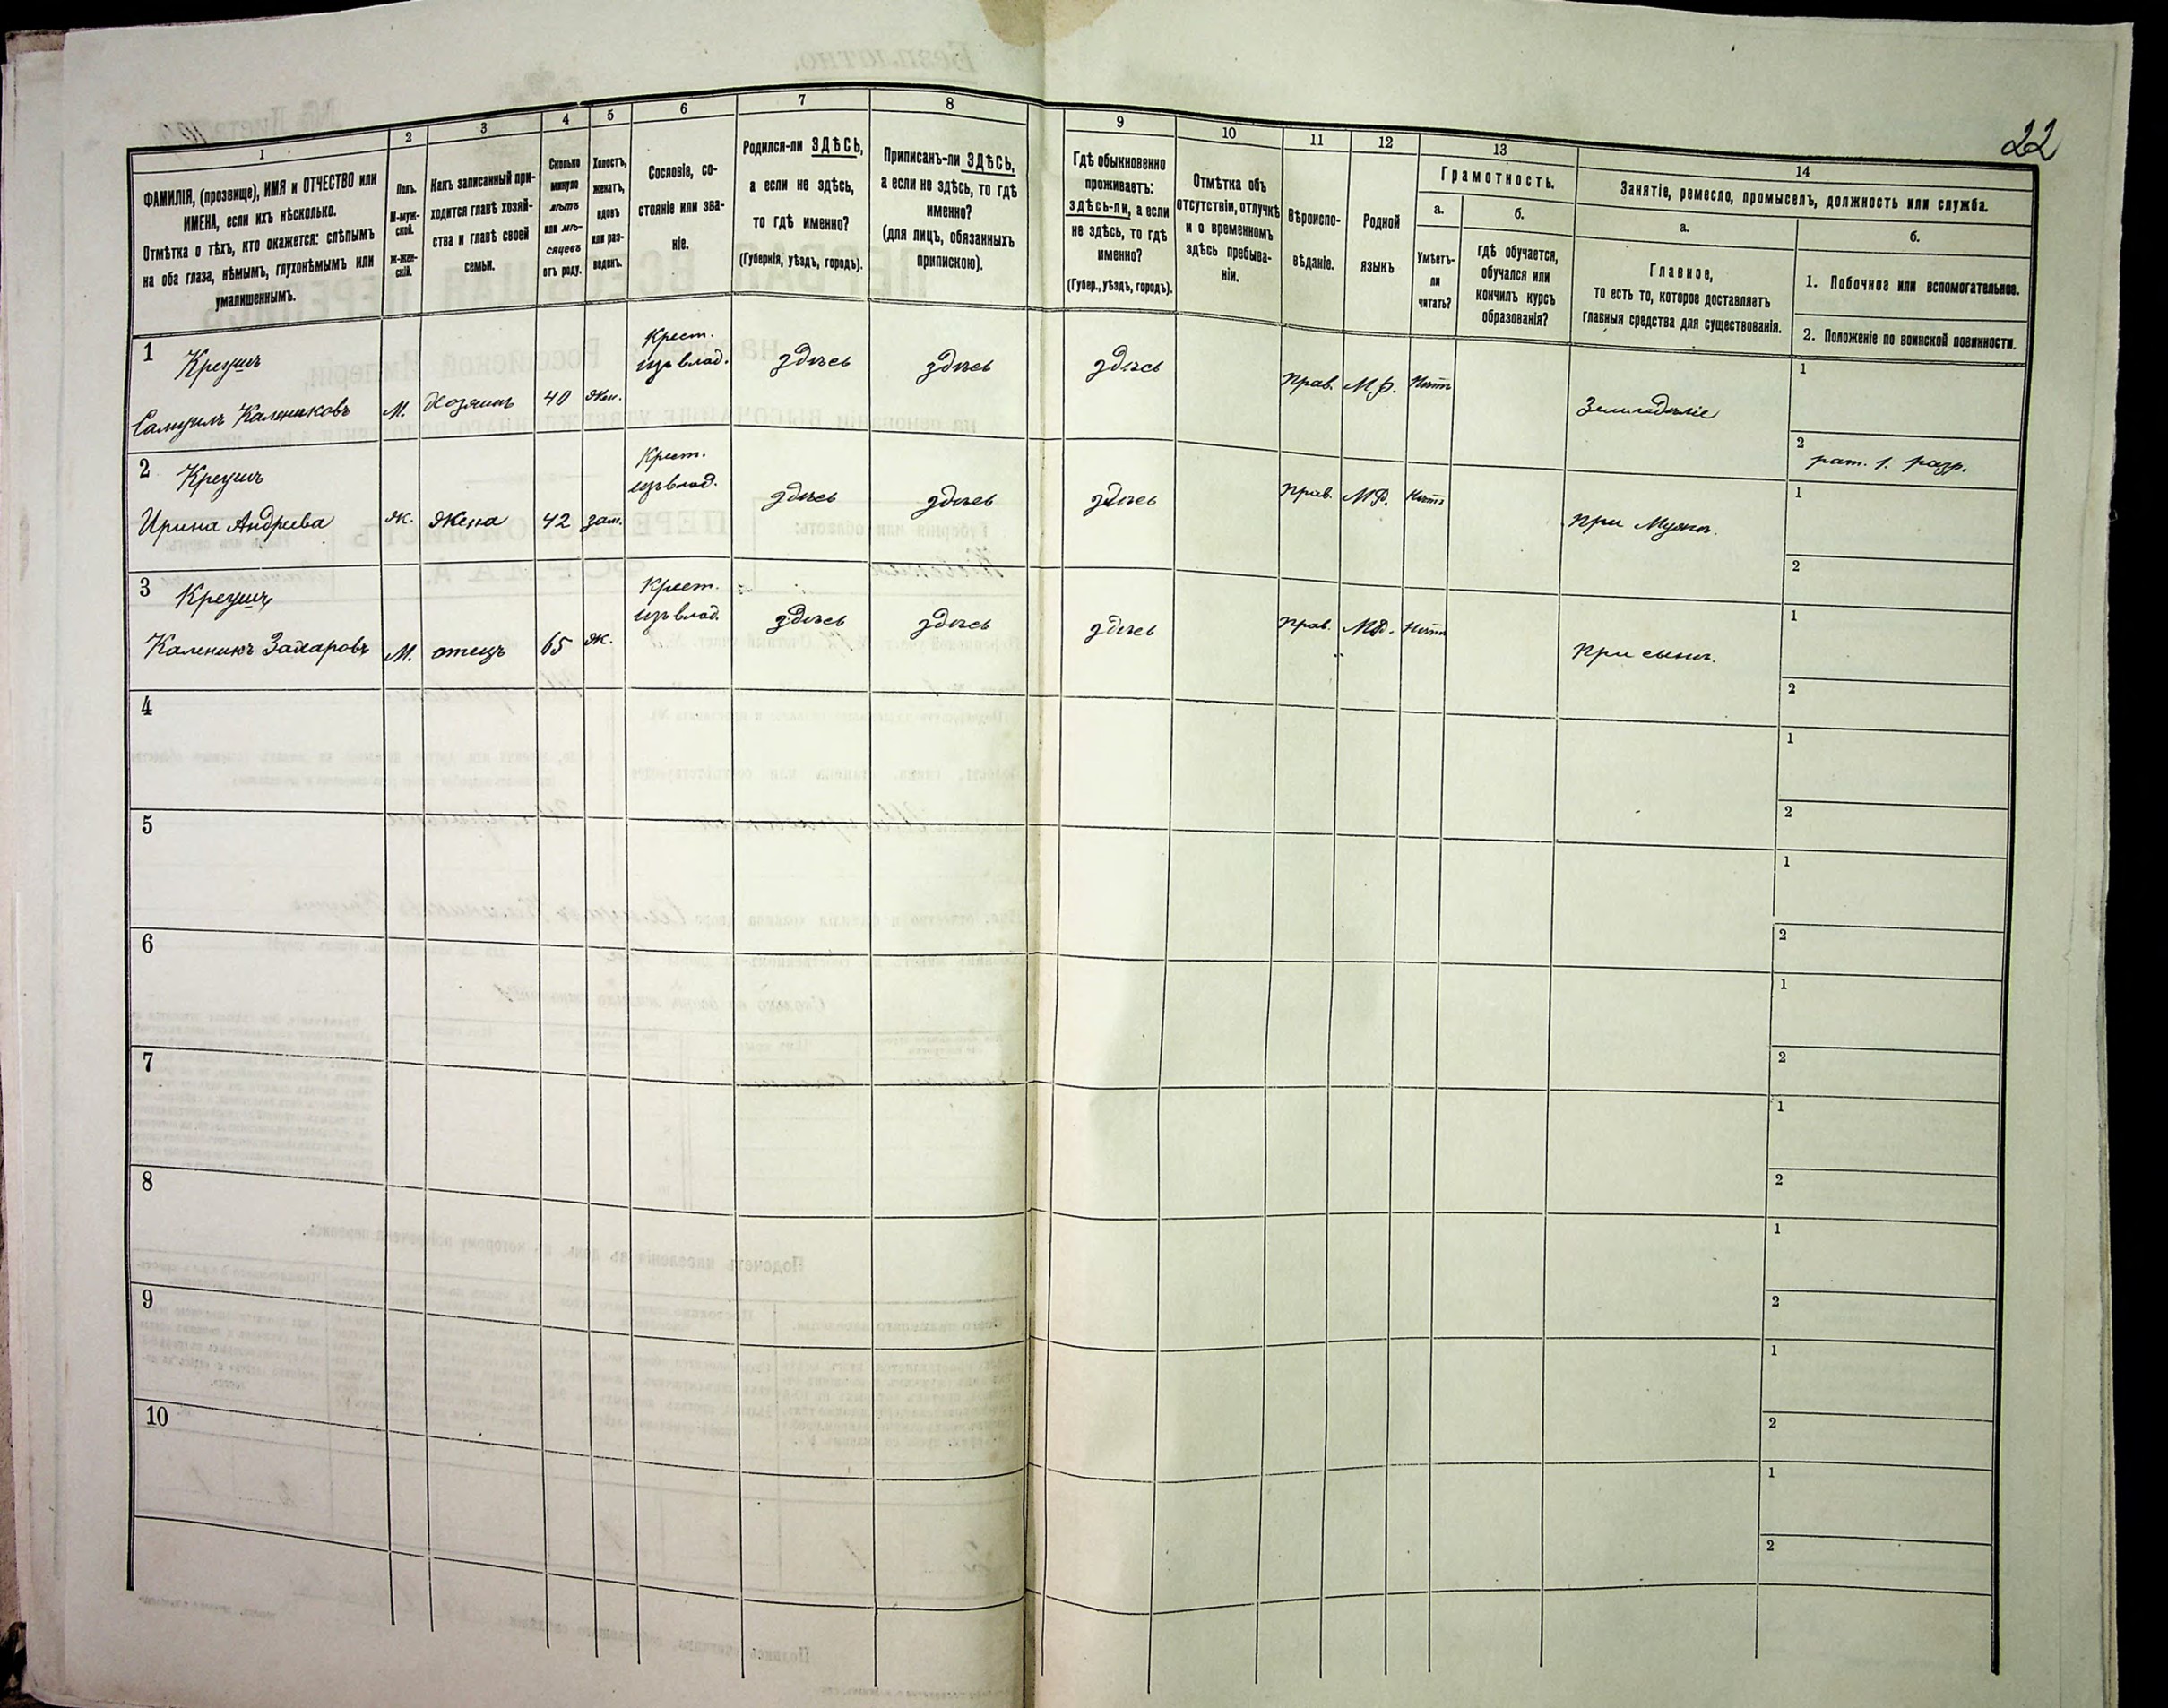 22
1
ФАМИЛІЯ, (прозвище), ИМЯ и ОТЧЕСТВО или
ИМЕНА, если ихъ нѣсколько.
Отмѣтка о тѣхъ, кто окажется: слѣпымъ
на оба глаза, нѣмымъ, глухонѣмымъ или
умалишеннымъ.
2
Полъ.
М-муж-
ской.
Ж-жен-
скій.
3
Какъ записанный при-
ходится главѣ хозяй-
ства и главѣ своей
семьи.
4
Сколько
минуло
лѣтъ
или мѣ-
сяцевъ
отъ роду.
5
Холостъ,
женатъ,
вдовъ
или раз-
веденъ.
6
Сословіе, со-
стояніе или зва-
ніе.
7
Родился-ли ЗДѢСЬ,
а если не здѣсь,
то гдѣ именно?
(Губернія, уѣздъ, городъ).
8
Приписанъ-ли ЗДѢСЬ,
а если не здѣсь, то гдѣ
именно?
(для лицъ, обязанныхъ
припискою).
9
Гдѣ обыкновенно
проживаетъ:
здѣсь-ли, а если
не здѣсь, то гдѣ
именно?
(Губер., уѣздъ, городъ).
10
Отмѣтка объ
отсутствіи, отлучкѣ
и о временномъ
здѣсь пребыва-
ніи.
11
Вѣроиспо-
вѣданіе.
12
Родной
языкъ
13
Грамотность.
а.
Умѣетъ-
ли
читать?
б.
гдѣ обучается,
обучался или
кончилъ курсъ
образованія?
14
Занятіе, ремесло, промыселъ, должность или служба.
а.
Главное,
то есть то, которое доставляетъ
главныя средства для существованія.
б.
1. Побочное или вспомогательное.
2. Положеніе по воинской повинности.
1
Крещикъ
Самуилъ Калениковъ
М.
Хозяинъ
40
жен.
Крест.
изъ влад.
здѣсь
здѣсь
здѣсь
Прав.
М. Р.
Нѣтъ
Земледѣліе
1
2
рат. 1. разр.
2
Ирина Андреева
Ж.
Жена
42
зам.
Крест.
изъ влад.
здѣсь
здѣсь
здѣсь
Прав.
М. Р.
Нѣтъ
При мужѣ.
1
2
3
Каленикъ Захаровъ
М.
отецъ
65
ж.
Крест.
изъ влад.
здѣсь
здѣсь
здѣсь
Прав.
М. Р.
Нѣтъ
При сынѣ.
1
2
4
1
2
5
1
2
6
1
2
7
1
2
8
1
2
9
1
2
10
1
2